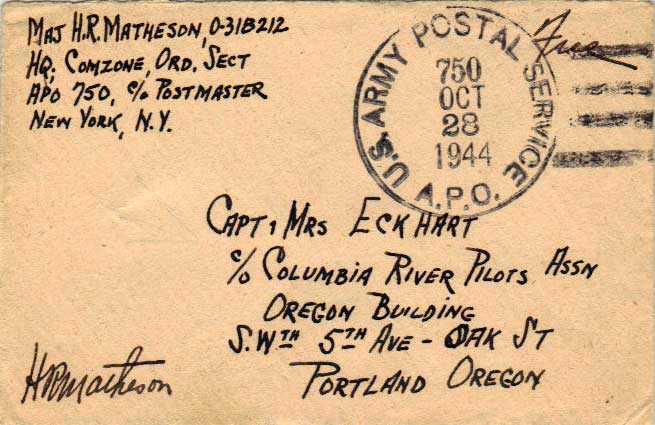 MAJ H.R. MATHESON, O-318212
HQ, COMZONE, ORD. SECT
APO 750, c/o POSTMASTER
NEW YORK, N.Y.
Free
U.S. ARMY POSTAL SERVICE
750
OCT
28
1944
A.P.O.
CAPT & MRS ECKHART
c/o COLUMBIA RIVER PILOTS ASSN
OREGON BUILDING
S.WTH 5TH AVE - OAK ST
PORTLAND OREGON
HRMatheson